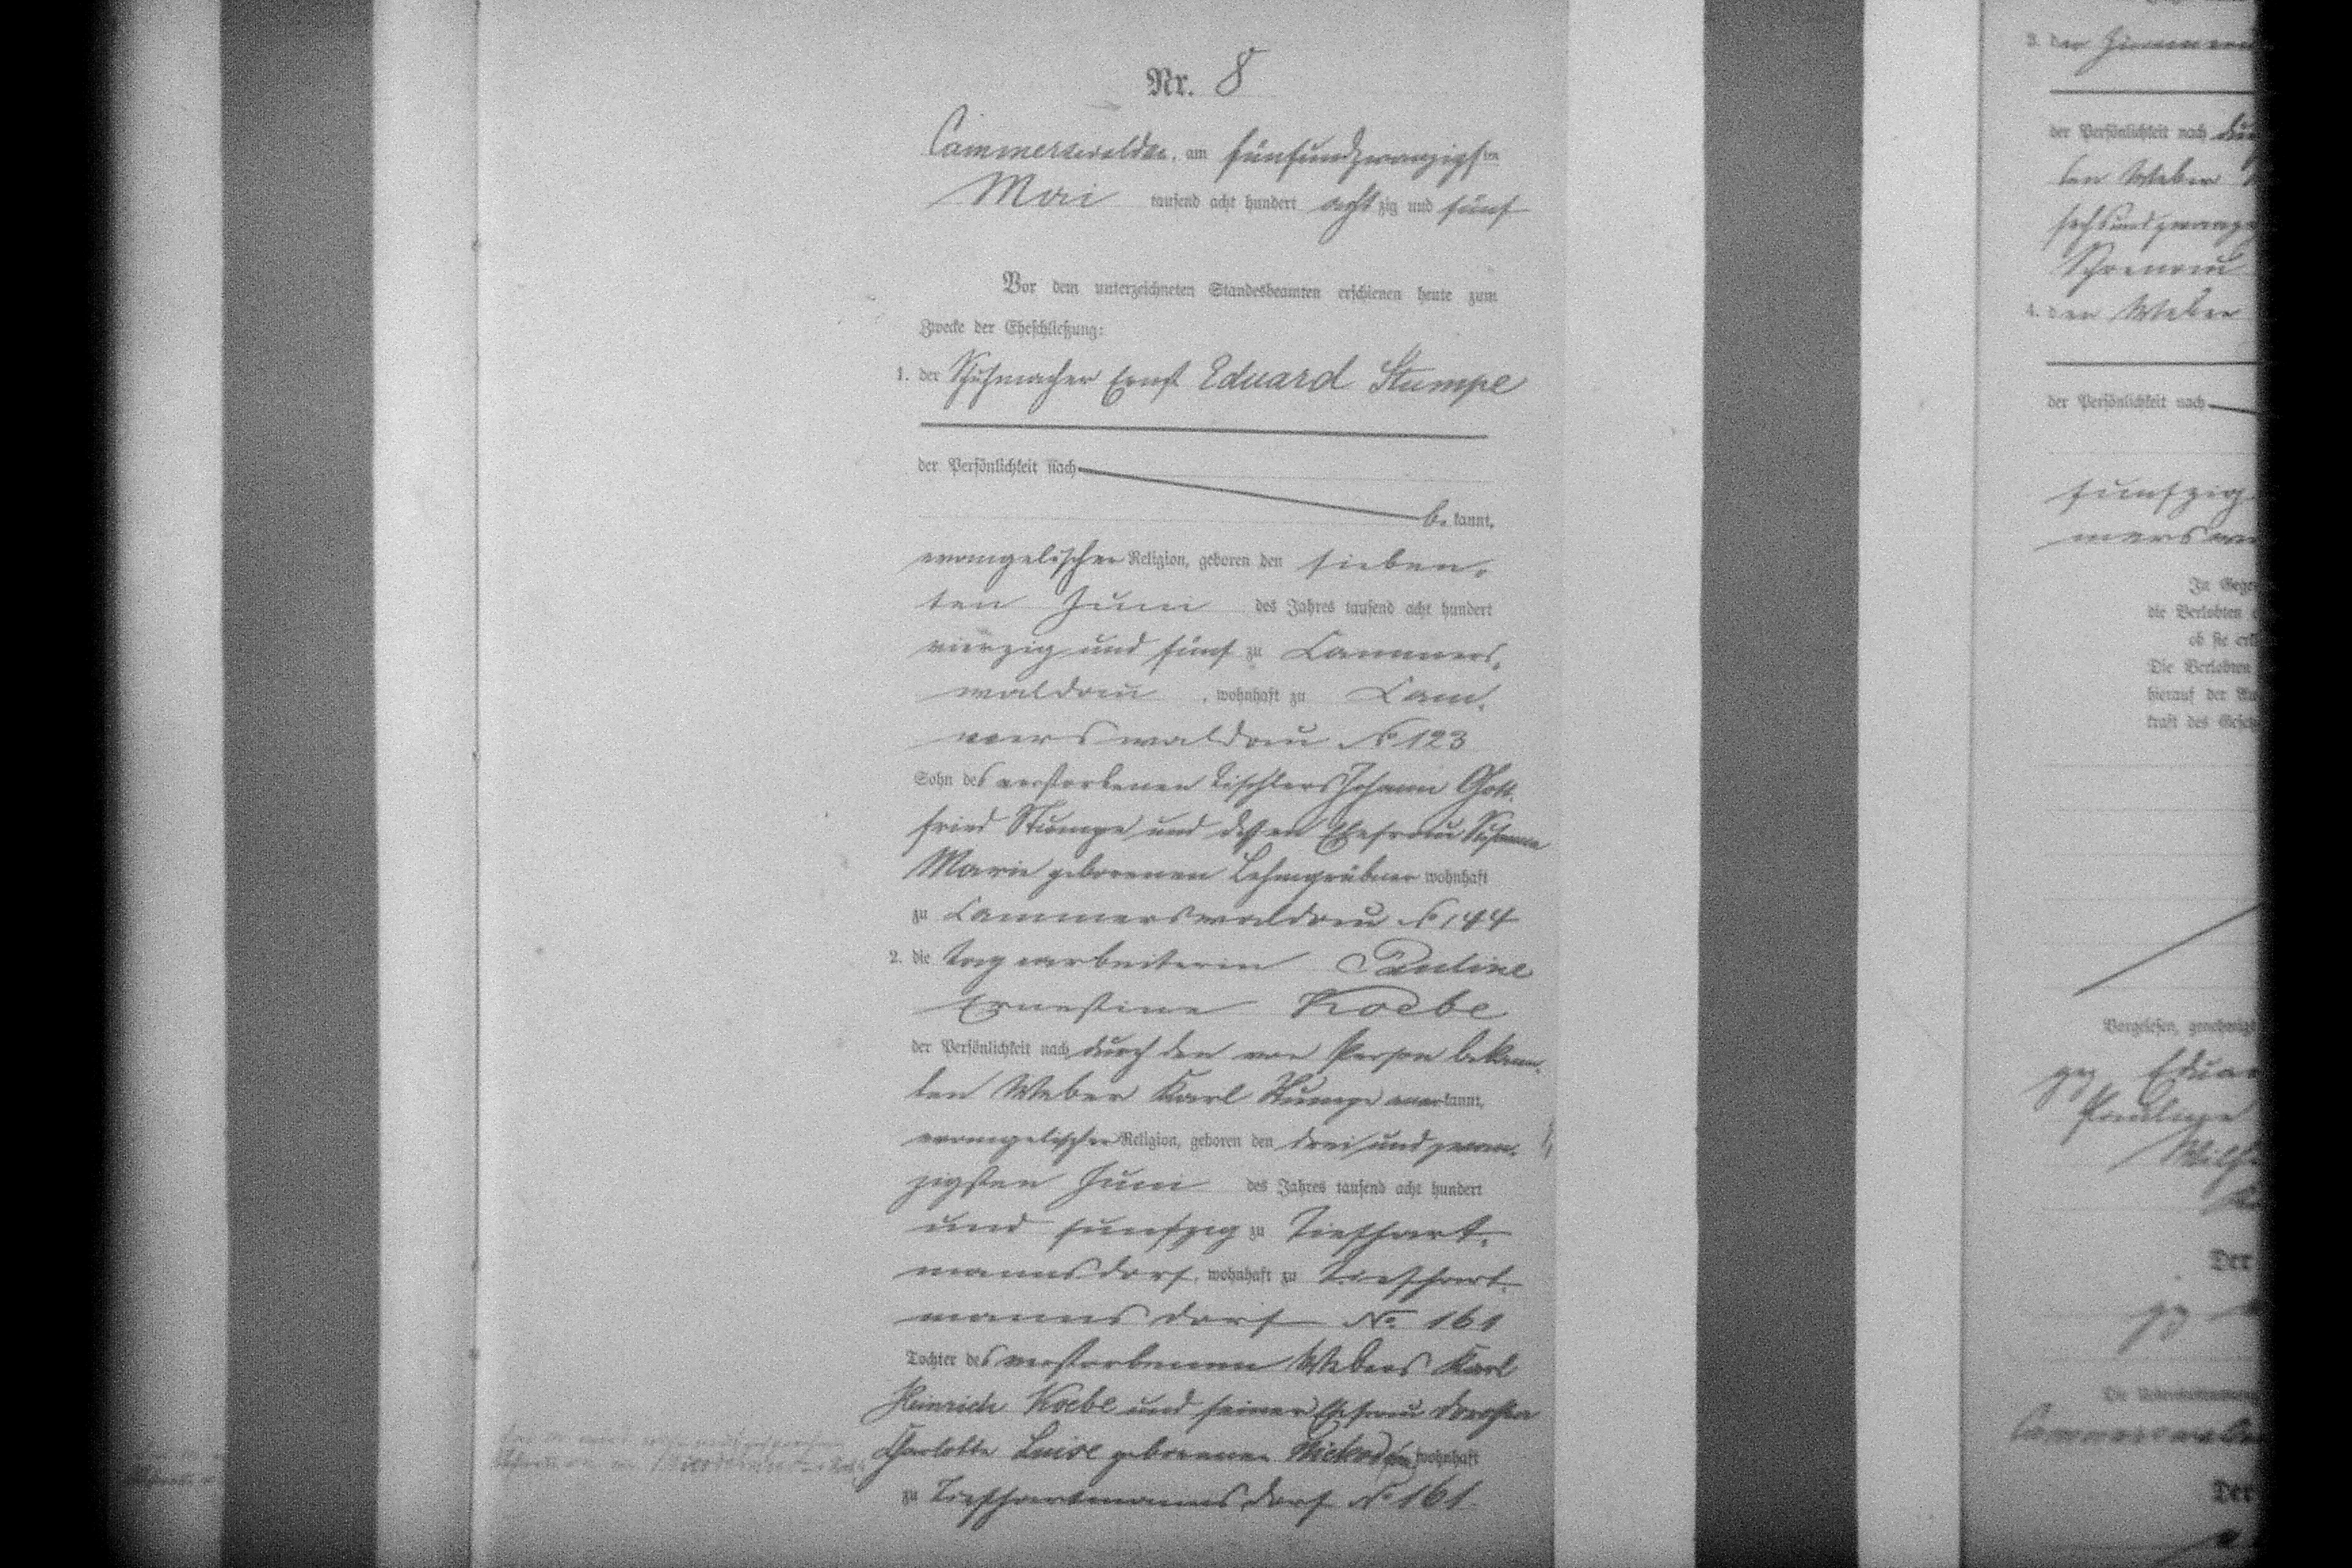 Nr. 8
Cammerswaldau, am fünfundzwanzigsten
Mai tausend acht hundert achtzig und fünf
Vor dem unterzeichneten Standesbeamten erschienen heute zum
Zwecke der Eheschließung:
1. der Schuhmacher Ernst Eduard Stumpe
der Persönlichkeit nach
be kannt,
evangelischer Religion, geboren den sieben-
ten Juni des Jahres tausend acht hundert
vierzig und fünf zu Cammers-
waldau, wohnhaft zu Cam-
merswaldau No 123
Sohn des verstorbenen Tischlers Johann Gott-
fried Stumpe und dessen Ehefrau Susanna
Marie geborenen Lehmgrübner wohnhaft
zu Cammerswaldau No 144
2. die Tagearbeiterin Pauline
Ernestine Koebe
der Persönlichkeit nach durch den von Person bekann-
ten Weber Karl Stumpe anerkannt,
evangelischer Religion, geboren den drei und zwan-
zigsten Juni des Jahres tausend acht hundert
und fünfzig zu Tiefhart-
mannsdorf, wohnhaft zu Tiefhart-
mannsdorf No. 161
Tochter des verstorbenen Webers Karl
Heinrich Koebe und seiner Ehefrau Dorothea
Charlotte Luise geborenen wohnhaft
zu Tiefhartmannsdorf No 161.
3. der
der Persönlichkeit nach
ten Weber
sechsundzwanzig
Schoenau
4. den Weber
der Persönlichkeit nach
fünfzig
merswal
In Gege
die Verlobten
ob sie erk
Die Verlobten
hierauf der
kraft des Gesetz
Vorgelesen, genehmigt
gez Eduar
Pauline
Wilh
Der
gez
Cammerswald
Der